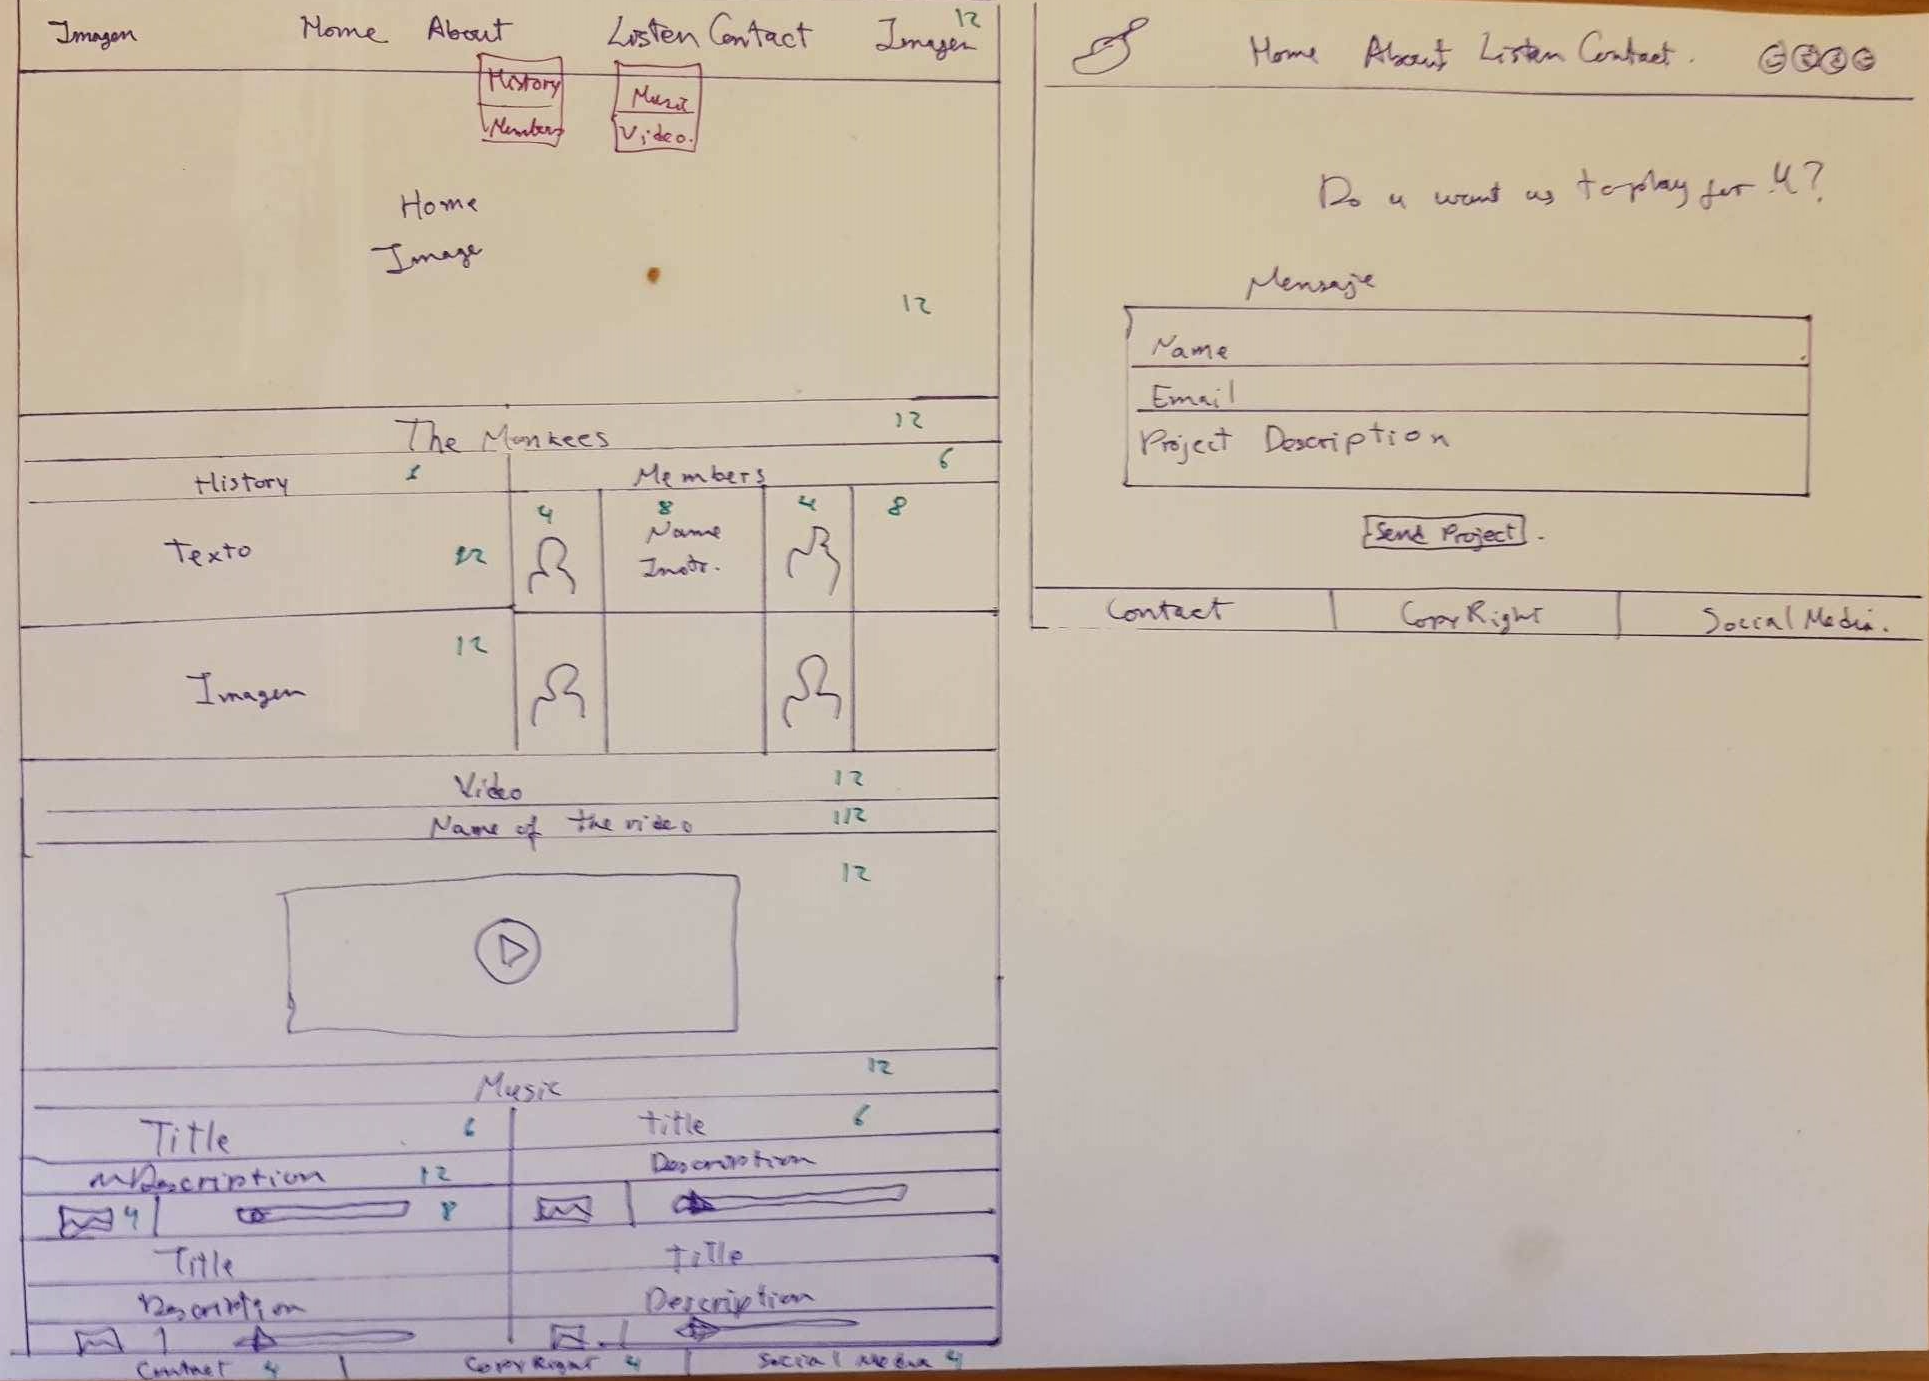 Imagen Home About Listen Contact Imagen 12
History
Members
Music
Video.
Home
Image
12
The Monkees 12
History Members 6
4 8 4 8
Texto 12 Name
Instr.
12
Imagen
Video 12
Name of the video 12
12
Music 12
Title 6 title 6
Description 12 Description
4 8
Title Title
Description Description
Contact 4 CopyRight 4 Social Media 4
Home About Listen Contact.
Do u want us to play for U?
Mensaje
Name
Email
Project Description
Send Project.
Contact CopyRight Social Media.